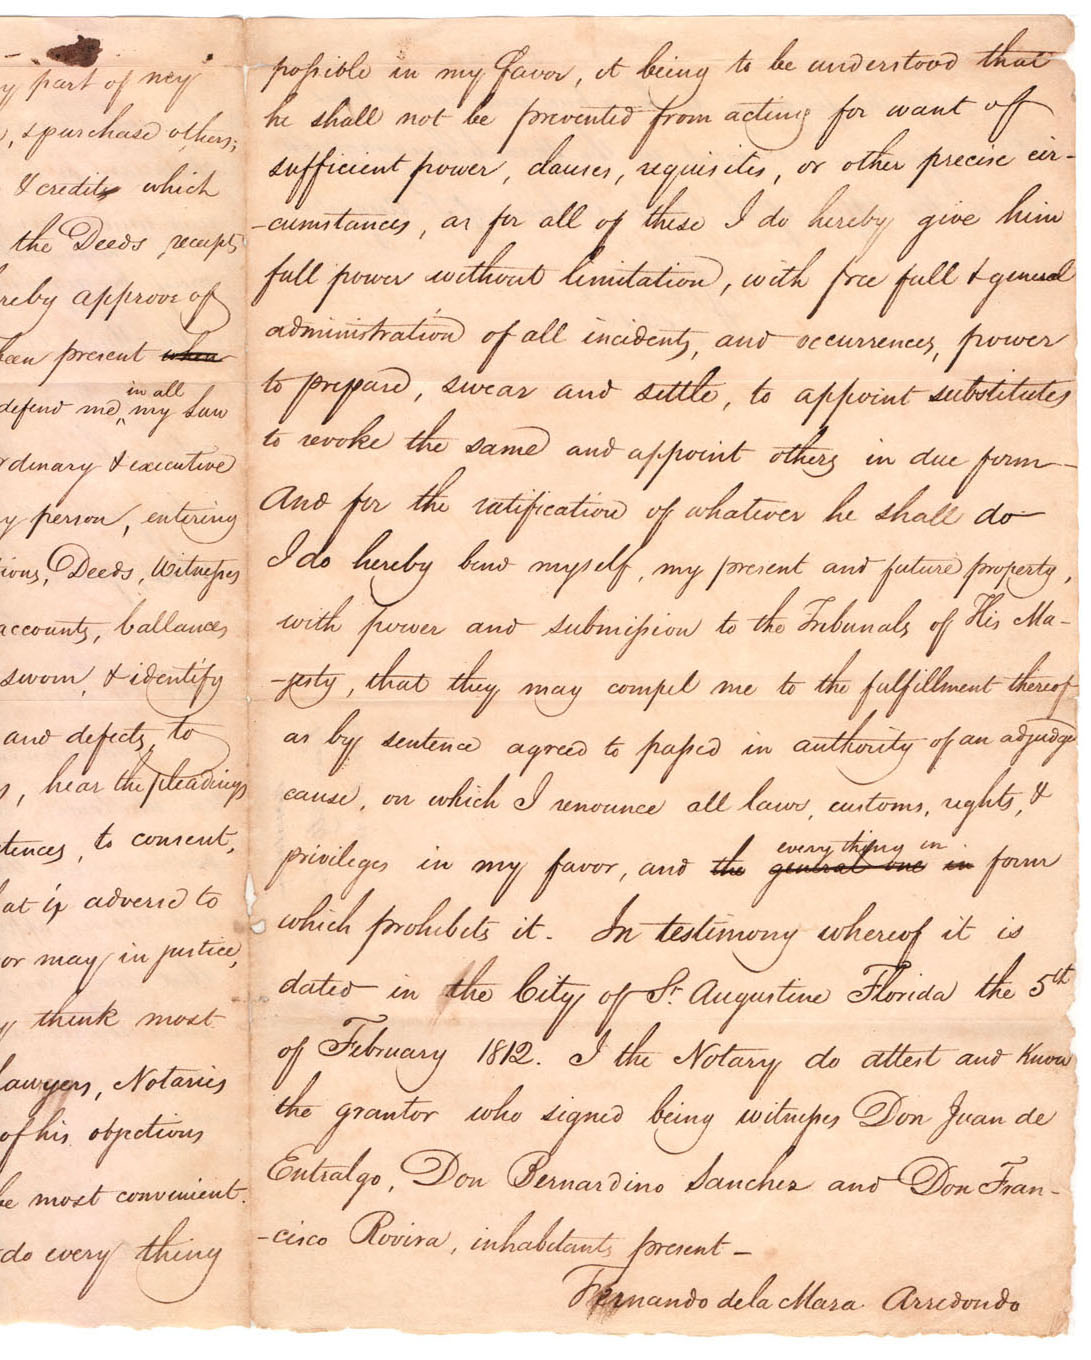 part of ney
, & purchase others,
& credits which
the Deeds, receipts
reby approve of
been present when
in all
defend me, my Law
rdinary & executive
y person, entering
ions, Deeds, Witnesses
accounts, ballances
sworn, & identify
and defects, to
s, hear the pleadings
tences, to consent,
at if adverse to
or may in justice,
y think most
Lawyers, Notaries
of his objections
be most convenient.
do every thing
possible in my favor, it being to be understood that
he shall not be prevented from acting for want of
sufficient power, clauses, requisites, or other precise cir-
-cumstances, as for all of these I do hereby give him
full power without limitation, with free full & general
administration of all incidents, and occurrences, power
to prepare, swear and settle, to appoint substitutes
to revoke the same and appoint others in due form—
And for the ratification of whatever he shall do—
I do hereby bend myself, my present and future property,
with power and submission to the Tribunals of His Ma-
-jesty, that they may compel me to the fulfillment thereof
as by sentence agreed to passed in authority of an adjudge
cause, on which I renounce all laws, customs, rights, &
every thing in
privileges in my favor, and the general one in form
which prohibits it. In testimony whereof it is
dated in the City of St. Augustine Florida the 5th
of February 1812. I the Notary do attest and know
the grantor who signed being witnesses Don Juan de
Entralgo, Don Bernardino Sanchez and Don Fran-
-cisco Rovira, inhabitants present—
Fernando de la Maza Arredondo